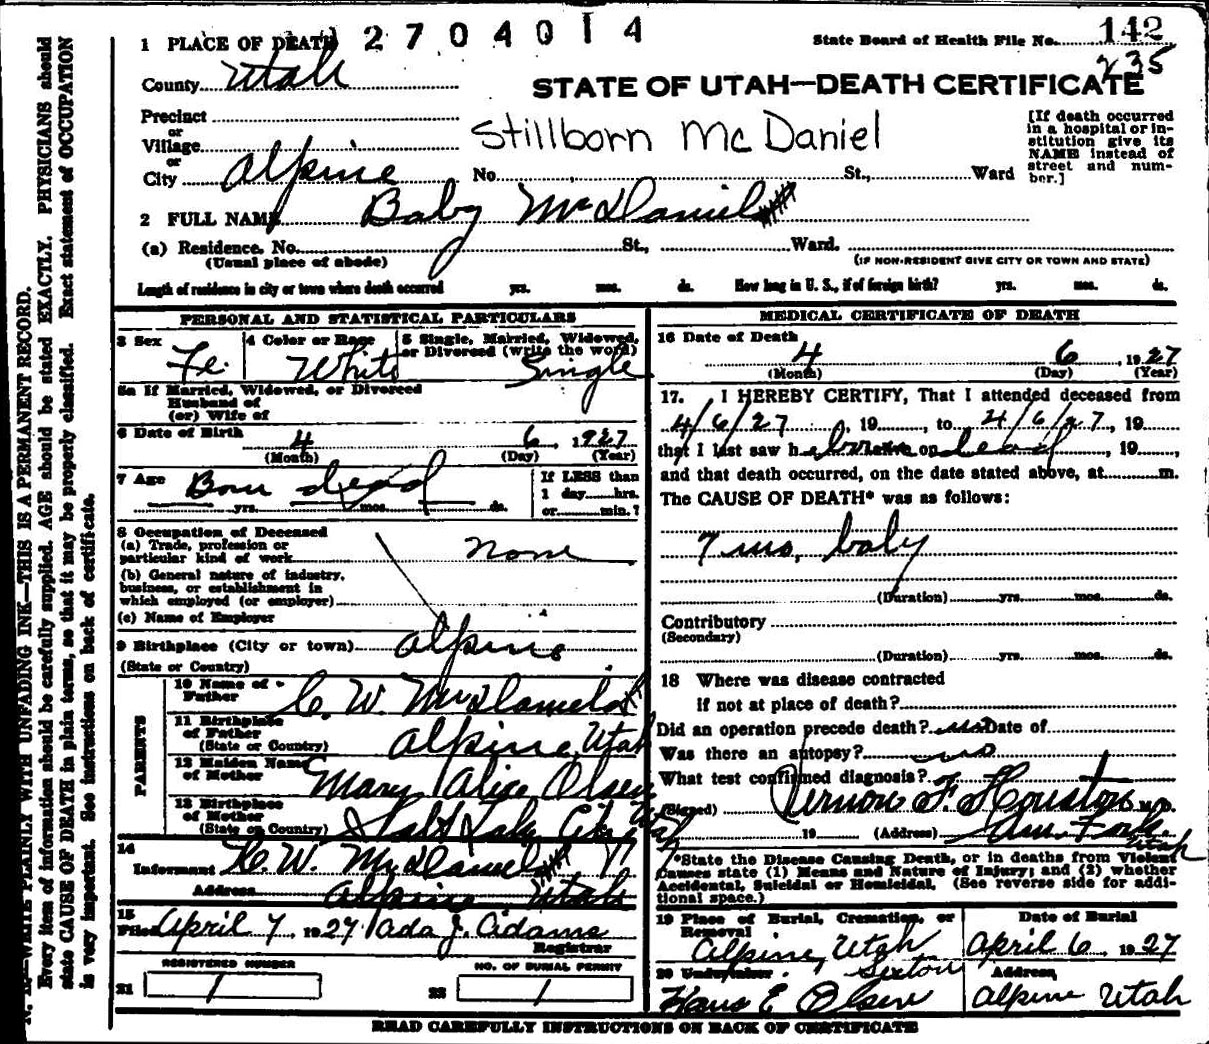 1 PLACE OF DEATH 2704014
State Board of Health File No. 142
235
County Utah
STATE OF UTAH—DEATH CERTIFICATE
Precinct
or
Village
or
City Alpine
Stillborn Mc Daniel
No. St., Ward
[If death occurred
in a hospital or in-
stitution give its
NAME instead of
street and num-
ber.]
2 FULL NAME Baby McDaniel
(a) Residence. No. St., Ward.
(Usual place of abode)
(IF NON-RESIDENT GIVE CITY OR TOWN AND STATE)
Length of residence in city or town where death occurred yrs. mos. ds. How long in U. S., if of foreign birth? yrs. mos. ds.
PERSONAL AND STATISTICAL PARTICULARS
3 Sex Fe.
4 Color or Race White
5 Single, Married, Widowed,
or Divorced (write the word)
Single
5a If Married, Widowed, or Divorced
Husband of
(or) Wife of
6 Date of Birth 4 6 1927
(Month) (Day) (Year)
7 Age Born dead
yrs. mos. ds.
If LESS than
1 day hrs.
or min.?
8 Occupation of Deceased
(a) Trade, profession or
particular kind of work None
(b) General nature of industry,
business, or establishment in
which employed (or employer)
(c) Name of Employer
9 Birthplace (City or town) Alpine
(State or Country)
PARENTS
10 Name of
Father C. W. McDaniel
11 Birthplace
of Father
(State or Country) Alpine, Utah
12 Maiden Name
of Mother Mary Alice Olsen
13 Birthplace
of Mother
(State or Country) Salt Lake City Utah
14
Informant C. W. McDaniel
Address Alpine Utah
15
Filed April 7, 1927 Ada J. Adams
Registrar
REGISTERED NUMBER
21 1
NO. OF BURIAL PERMIT
22 1
MEDICAL CERTIFICATE OF DEATH
16 Date of Death
4 6 1927
(Month) (Day) (Year)
17. I HEREBY CERTIFY, That I attended deceased from
4/6/27, 19, to 4/6/27, 19
that I last saw h alive on dead, 19,
and that death occurred, on the date stated above, at m.
The CAUSE OF DEATH* was as follows:
7 mo. baby
(Duration) yrs. mos. ds.
Contributory
(Secondary)
(Duration) yrs. mos. ds.
18 Where was disease contracted
if not at place of death?
Did an operation precede death? no Date of
Was there an autopsy? no
What test confirmed diagnosis?
(Signed) Vernon F. Houston M.D.
19 (Address) Am. Fork
Utah
*State the Disease Causing Death, or in deaths from Violent
Causes state (1) Means and Nature of Injury; and (2) whether
Accidental, Suicidal or Homicidal. (See reverse side for addi-
tional space.)
19 Place of Burial, Cremation, or
Removal
Alpine, Utah
Date of Burial
April 6 1927
20 Undertaker Sexton
Hans E Olsen
Address
Alpine Utah
READ CAREFULLY INSTRUCTIONS ON BACK OF CERTIFICATE
N. B.—WRITE PLAINLY WITH UNFADING INK—THIS IS A PERMANENT RECORD.
Every item of information should be carefully supplied. AGE should be stated EXACTLY. PHYSICIANS should
state CAUSE OF DEATH in plain terms, so that it may be properly classified. Exact statement of OCCUPATION
is very important. See instructions on back of certificate.